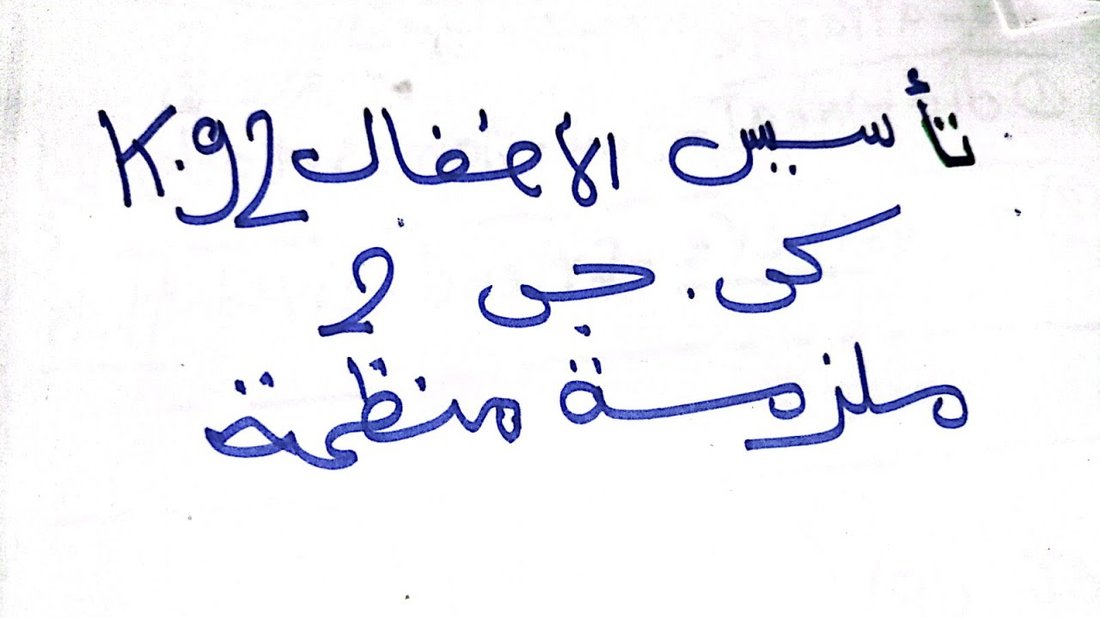 تأسيس الأطفال K.g2
كى.جى 2
ملزمة منظمة